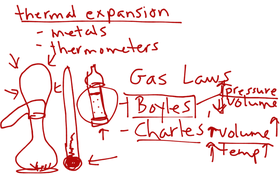 thermal expansion
- metals
- thermometers
Gas Laws
- Boyles ↑ pressure
↓ Volume
- Charles ↑ Volume ↑
↑ Temp ↑